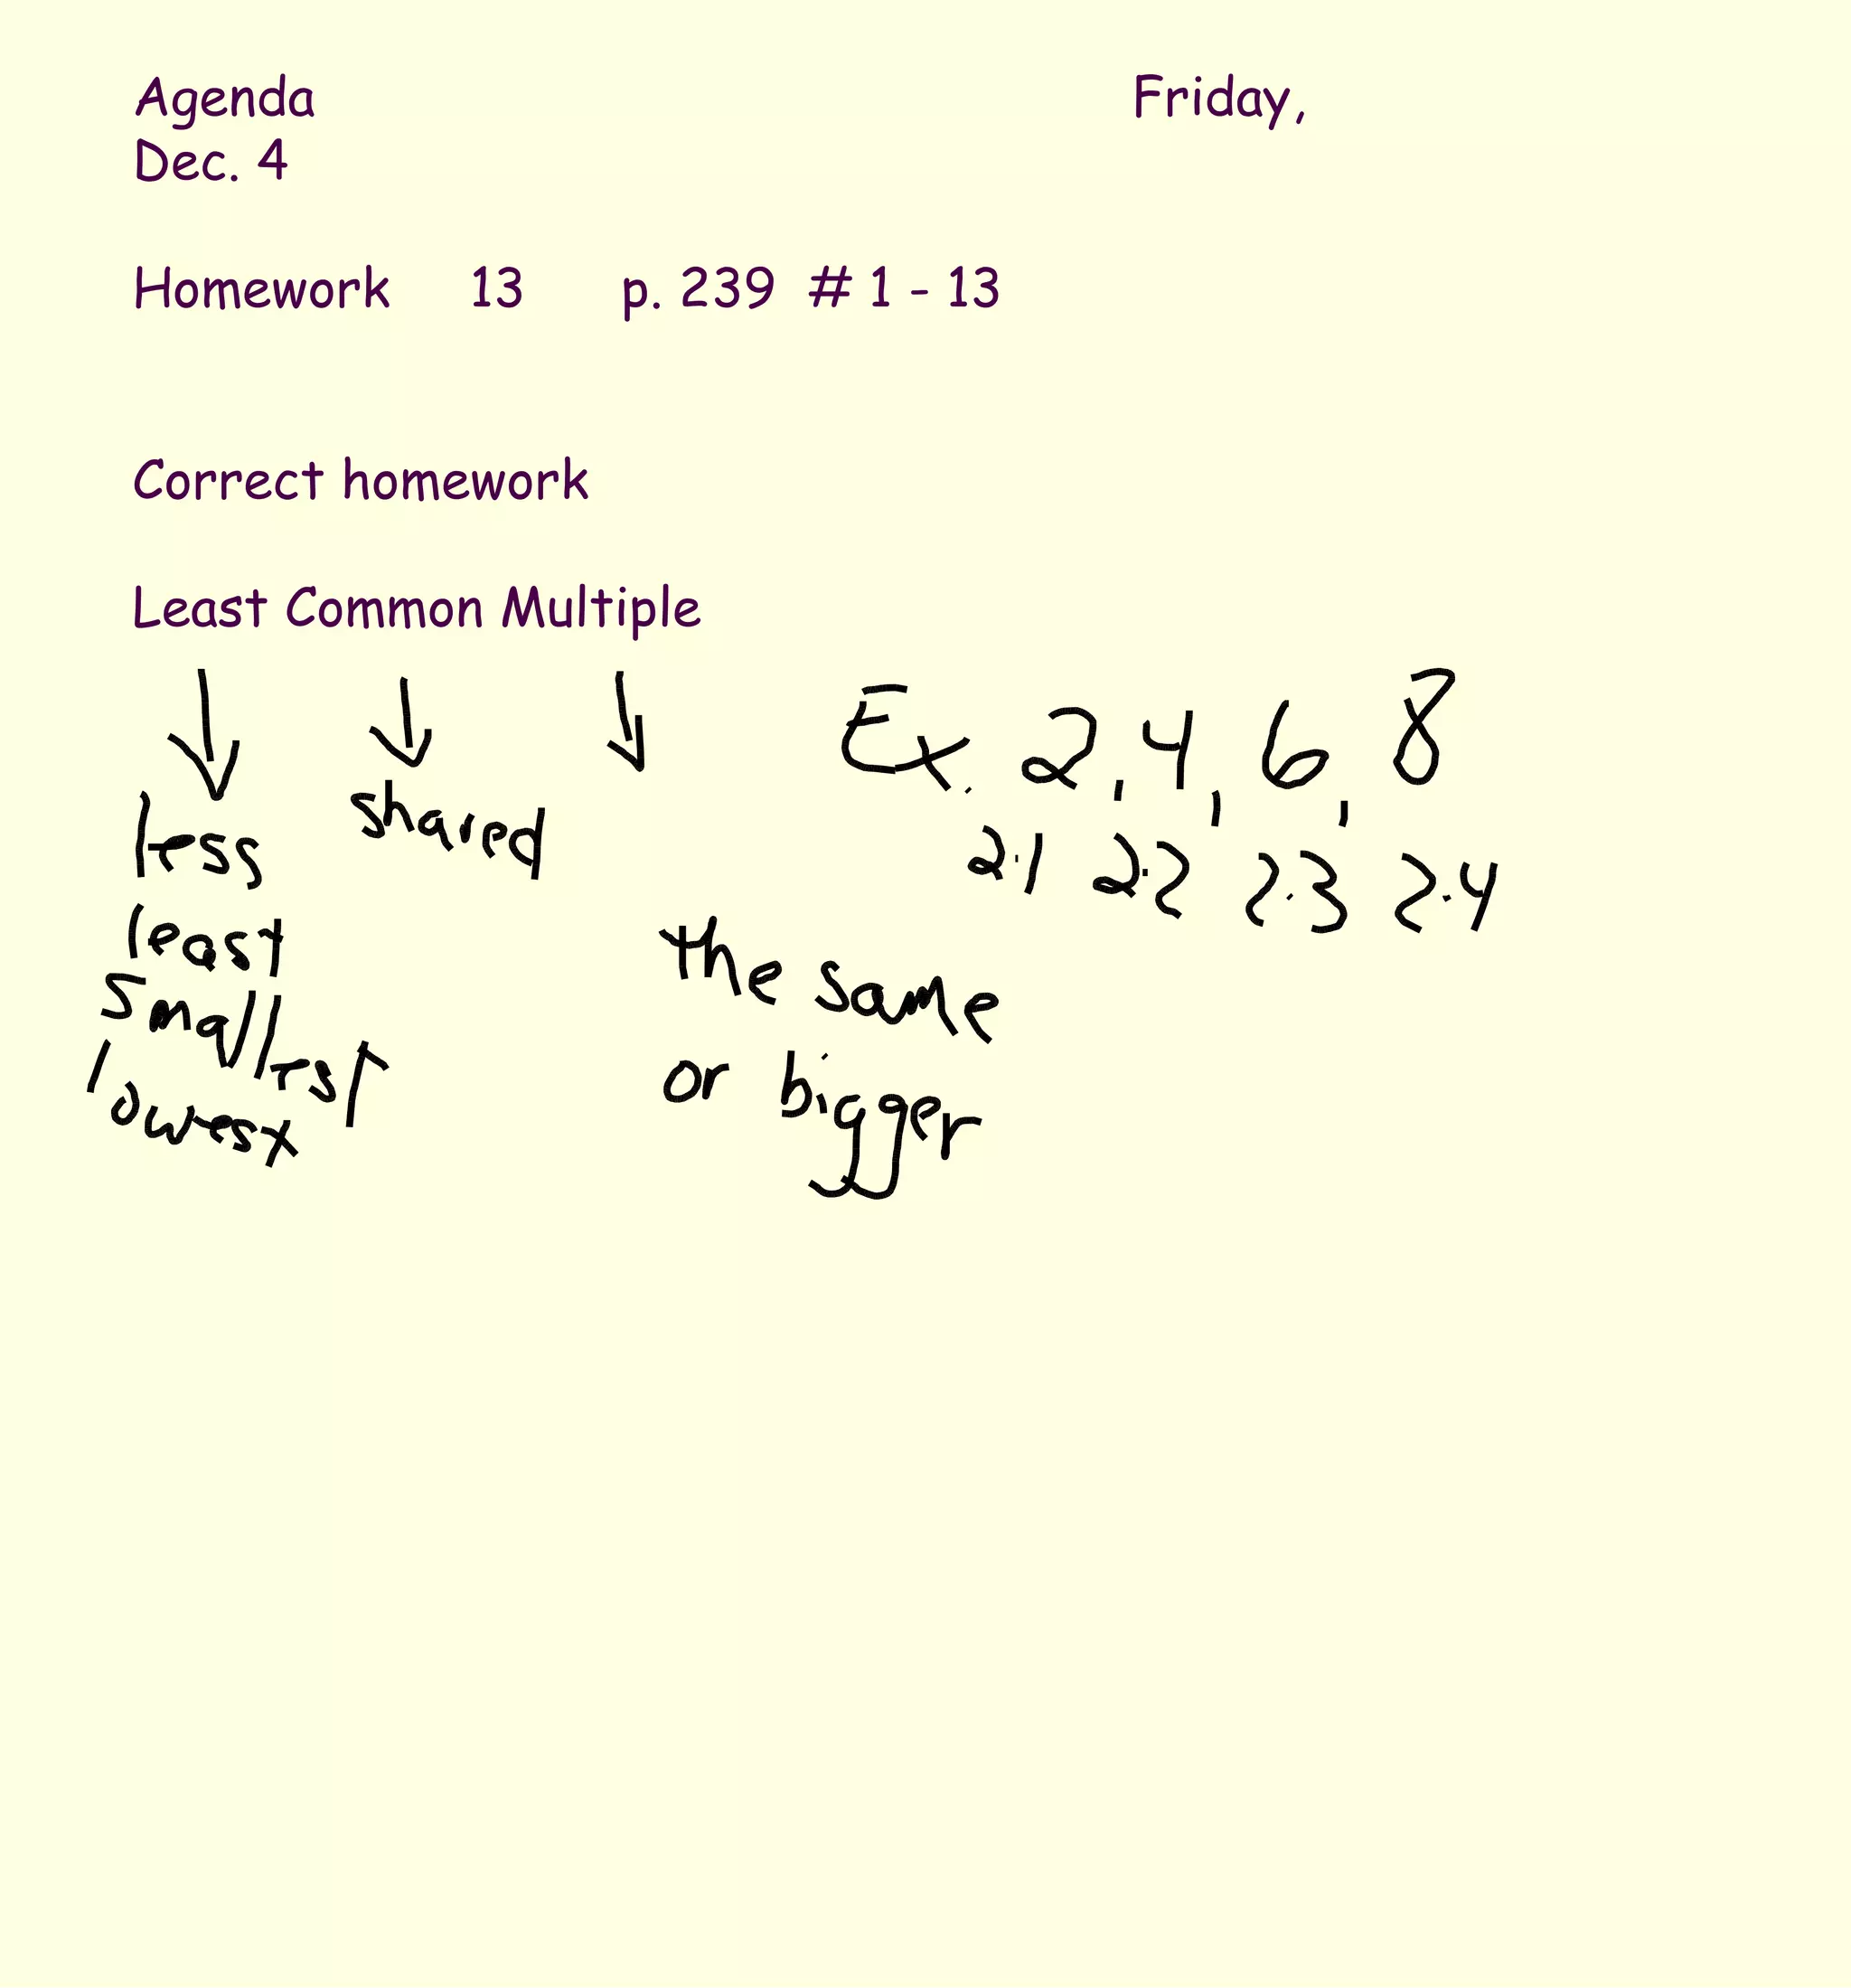 Agenda Friday,
Dec. 4
Homework 13 p. 239 # 1 - 13
Correct homework
Least Common Multiple
Ex. 2, 4, 6, 8
2·1 2·2 2·3 2·4
less shared
least
smallest
lowest
the same
or bigger